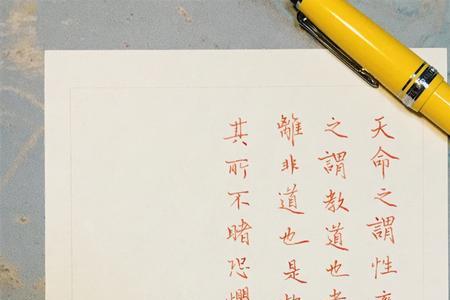 天命之謂性
之謂教道也
離非道也是
其所不睹恐懼